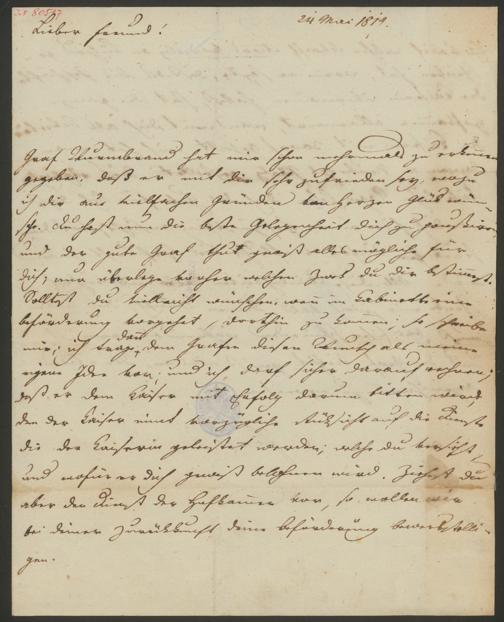 24 Mai 1819.
Lieber Freund!
Graf Wurmbrand hat mir schon mehrmals zu erkennen
gegeben, daß er mit dir sehr zufrieden sey, wozu
ich dir aus vielfachen Gründen von Herzen Glück wün-
sche. Du hast nun die beste Gelegenheit dich zu
und der gute Graf thut gewiß alles mögliche für
dich, nur überlege vorher welchen Zweck du dir bestimmst.
Solltest du vielleicht wünschen, wenn im Kabinette eine
Beförderung vorgehet, dorthin zu kommen; so schreibe
mir; ich trage dann dem Grafen diesen Wunsch als meine
eigene Idee vor; und ich darf sicher darauf rechnen;
daß er dem Kaiser mit Erfolg darum bitten wird;
den der Kaiser nimt vorzügliche Rücksicht auf die Dienste
die der Kaiserin geleistet werden; welche du versiehst,
und wofür er dich gewiß belohnen wird. Ziehest du
aber den Dienst der Hofkammer vor, so wollen wir
bei deiner Zurückkunft deine Beförderung bewerkstelli-
gen.